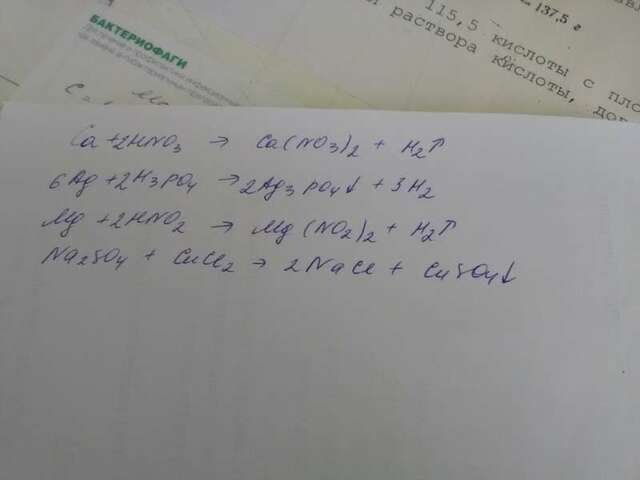 БАКТЕРИОФАГИ
137,5 г
115,5 кислоты с
раствора кислоты,
Ca + 2HNO3 → Ca(NO3)2 + H2↑
6Ag + 2H3PO4 → 2Ag3PO4↓ + 3H2
Mg + 2HNO2 → Mg(NO2)2 + H2↑
Na2SO4 + CuCl2 → 2NaCl + CuSO4↓